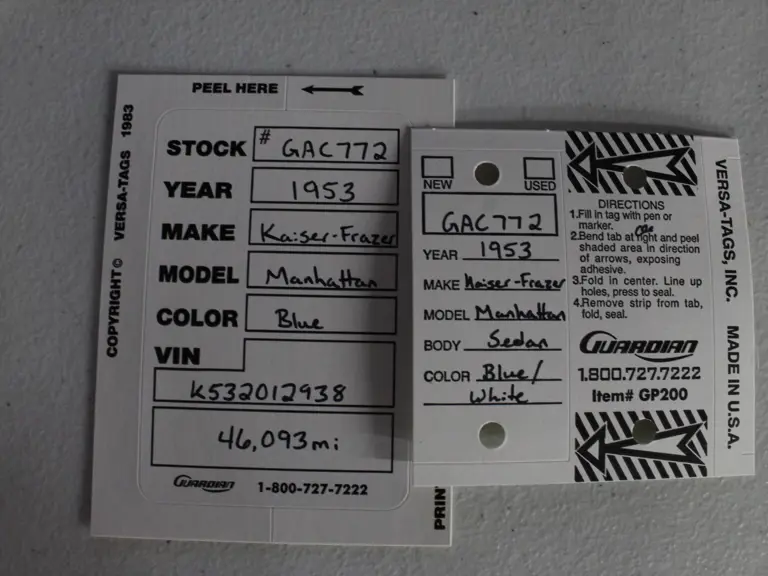 PEEL HERE
COPYRIGHT © VERSA-TAGS 1983
STOCK # GAC772
YEAR 1953
MAKE Kaiser-Frazer
MODEL Manhattan
COLOR Blue
VIN
K532012938
46,093 mi
GUARDIAN 1-800-727-7222
PRIN
NEW USED
GAC772
YEAR 1953
MAKE Kaiser-Frazer
MODEL Manhattan
BODY Sedan
COLOR Blue/
White
DIRECTIONS
1.Fill in tag with pen or
marker.
2.Bend tab at right and peel
shaded area in direction
of arrows, exposing
adhesive.
3.Fold in center. Line up
holes, press to seal.
4.Remove strip from tab,
fold, seal.
GUARDIAN
1.800.727.7222
Item# GP200
VERSA-TAGS, INC. MADE IN U.S.A.